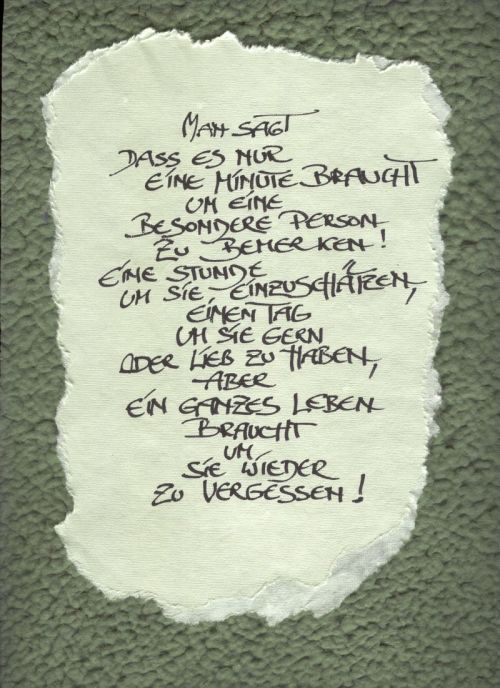 MAN SAGT
DASS ES NUR
EINE MINUTE BRAUCHT
UM EINE
BESONDERE PERSON
ZU BEMERKEN!
EINE STUNDE
UM SIE EINZUSCHÄTZEN,
EINEN TAG
UM SIE GERN
ODER LIEB ZU HABEN,
ABER
EIN GANZES LEBEN
BRAUCHT
UM
SIE WIEDER
ZU VERGESSEN!